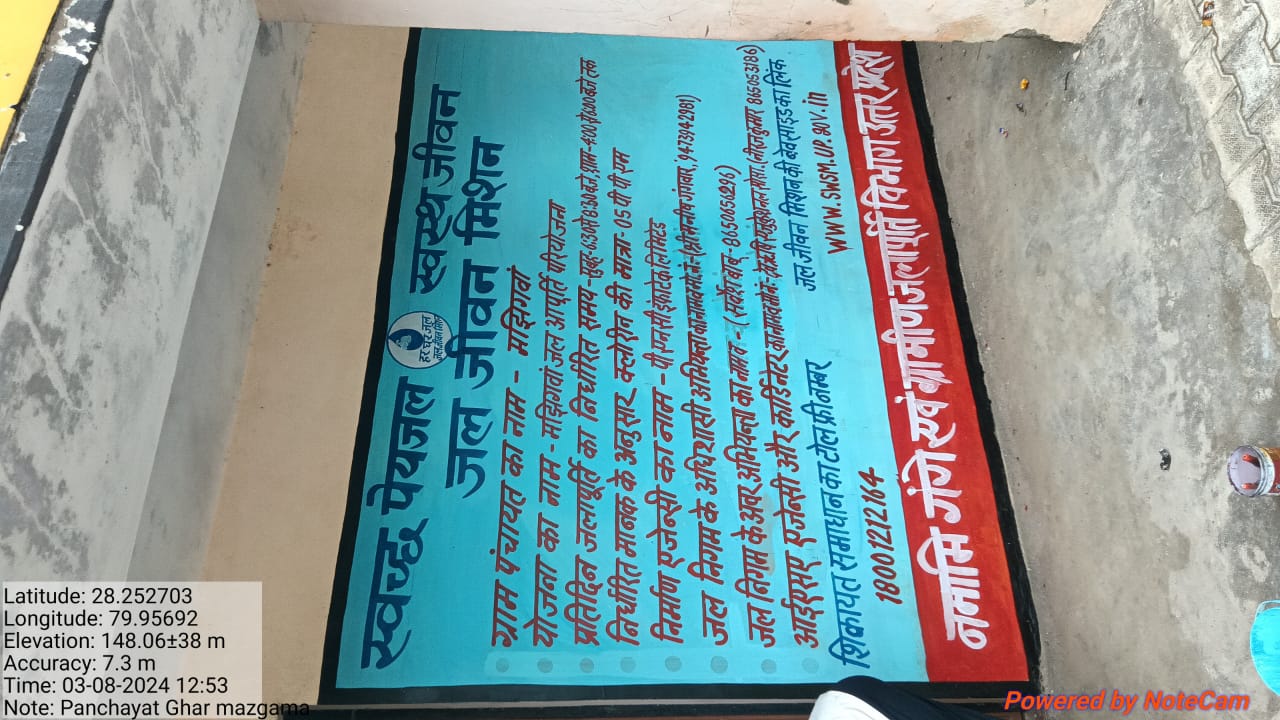 स्वच्छ पेयजल स्वस्थ जीवन
हर घर जल
जल जीवन मिशन
जल जीवन मिशन
ग्राम पंचायत का नाम - मझिगवां
योजना का नाम - मझिगवां जल आपूर्ति परियोजना
प्रतिदिन जलापूर्ति का निर्धारित समय - सुबह- 6:30 से 8:30 बजे, शाम-4:00 से 6:00 बजे तक
निर्धारित मानक के अनुसार क्लोरीन की मात्रा- 05 पी.पी.एम
निर्माण एजेन्सी का नाम - पी.एन.सी इंफ्राटेक लिमिटेड
जल निगम के अधिशासी अभियन्ता का नाव मो.नं-
जल निगम के अवर अभियन्ता का नाम -
आईएसए एजेन्सी और कार्डिनेटर का नाम
शिकायत समाधान का टोल फ्री नम्बर
18001212164
जल जीवन मिशन की बेवसाइड का लिंक
www.SWSM.UP.GOV.in
नमामि गंगे एवं ग्रामीण जलापूर्ति विभाग उत्तर प्रदेश
Latitude: 28.252703
Longitude: 79.95692
Elevation: 148.06±38 m
Accuracy: 7.3 m
Time: 03-08-2024 12:53
Note: Panchayat Ghar mazgama
Powered by NoteCam